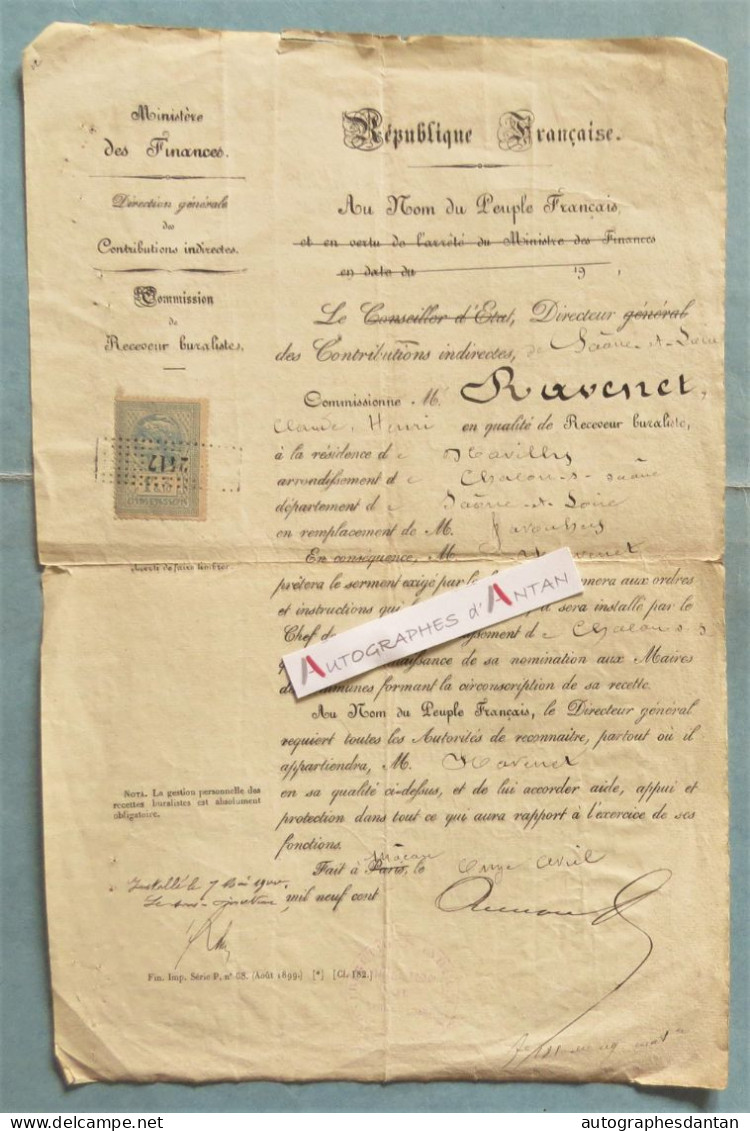 Ministère
des Finances.
Direction générale
des
Contributions indirectes.
Commission
de
Receveur buraliste.
2417
Nota. La gestion personnelle des
recettes buralistes est absolument
obligatoire.
Installé le 7 Mai 1900
Le
République Française.
Au Nom du Peuple Français,
et en vertu de l'arrêté du Ministre des Finances
en date du 19 ,
Le Conseiller d'État, Directeur général
des Contributions indirectes, de Saône-et-Loire
Commissionne M. Ravenet,
Claude Henri en qualité de Receveur buraliste,
à la résidence de
arrondissement de Chalon-s-Saône
département de Saône-et-Loire
en remplacement de M.
En conséquence, M. Ravenet
prêtera le serment exigé par le aux ordres
et instructions qui sera installé par le
Chef de de Chalon s S
de sa nomination aux Maires
de communes formant la circonscription de sa recette.
Au Nom du Peuple Français, le Directeur général
requiert toutes les Autorités de reconnaître, partout où il
appartiendra, M. Ravenet
en sa qualité ci-dessus, et de lui accorder aide, appui et
protection dans tout ce qui aura rapport à l'exercice de ses
fonctions.
Fait à Paris, Mâcon le onze avril
mil neuf cent
Fin. Imp. Série P, n° 68. (Août 1899.) [*] [Cl. 182.]
AUTOGRAPHES d'ANTAN
delcampe.net
autographesdantan